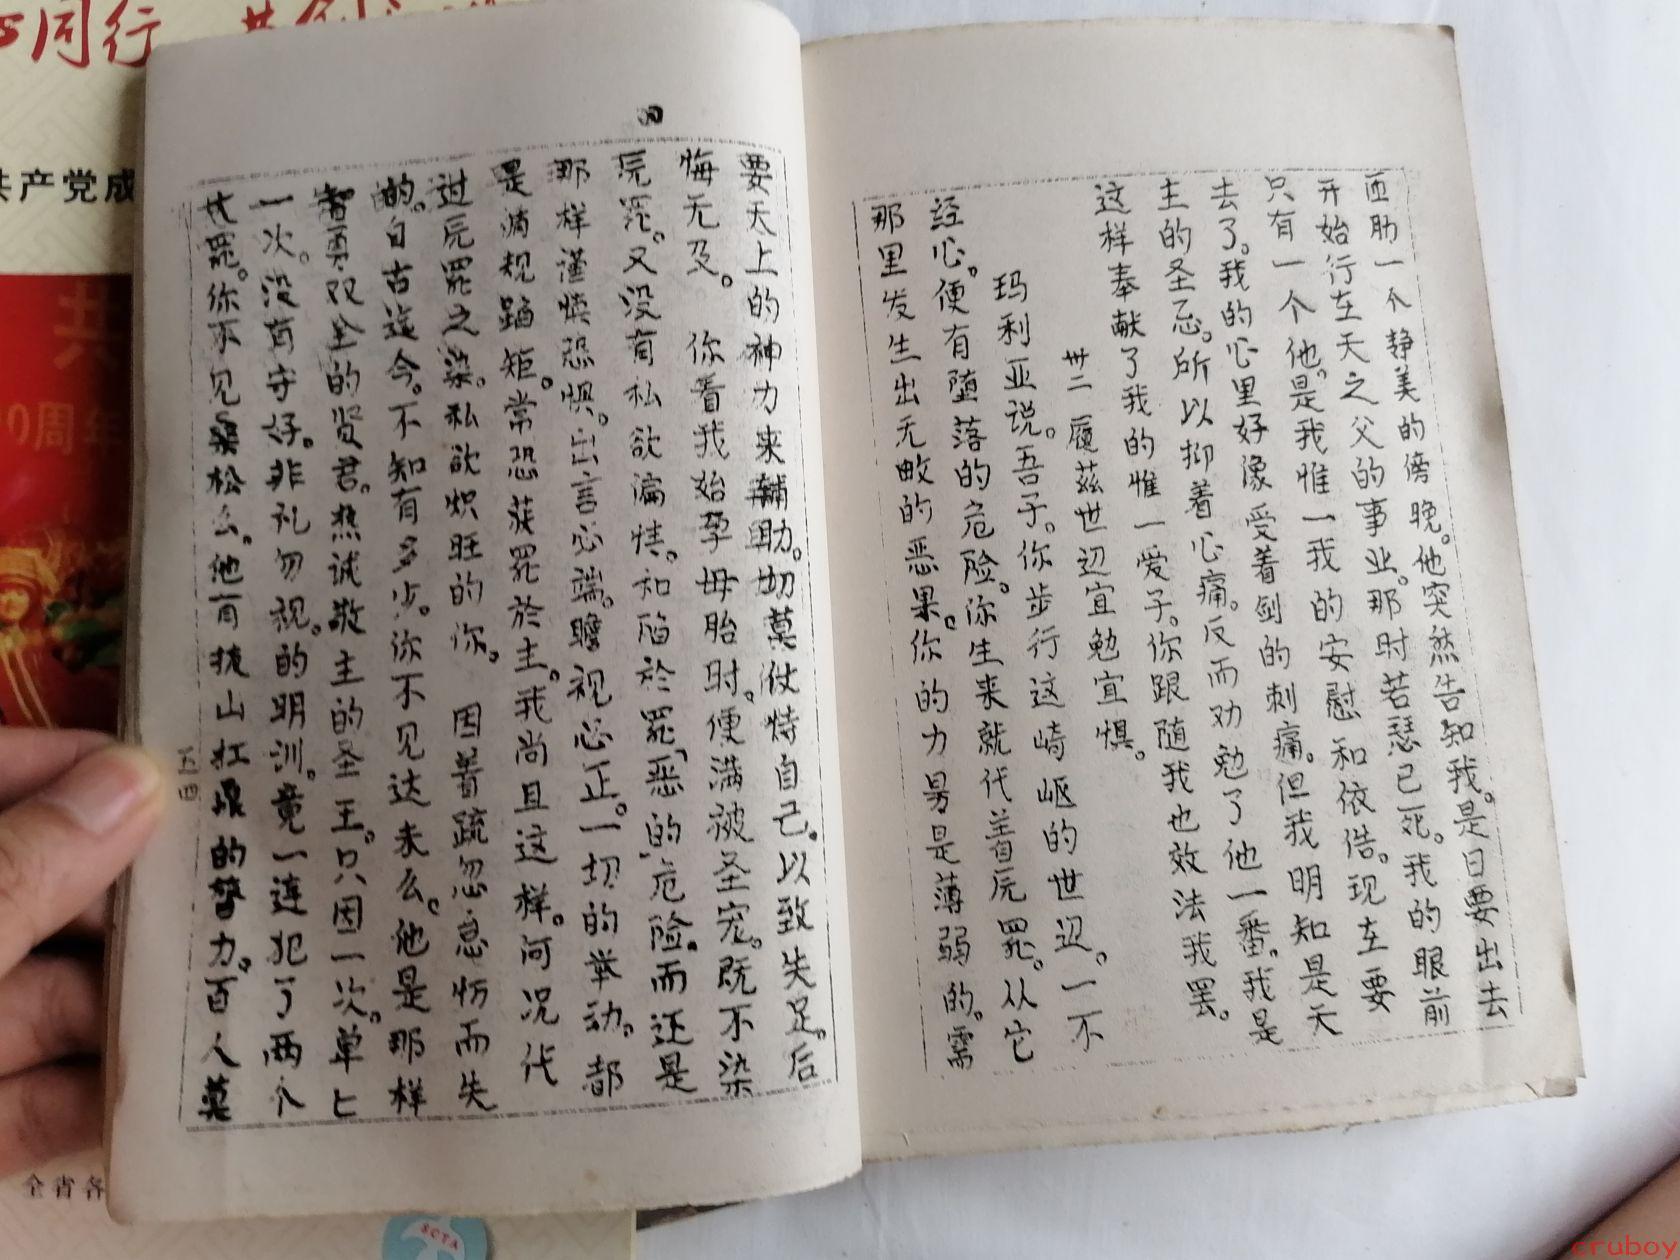 西肋一个静美的傍晚。他突然告知我。是日要出去
开始行在天之父的事业。那时若瑟已死。我的眼前
只有一个他。是我惟一我的安慰和依借。现在要
去了。我的心里好像受着剑的刺痛。但我明知是天
主的圣忌。所以抑着心痛。反而劝勉了他一番。我是
这样奉献了我的惟一爱子。你跟随我也效法我罢。
卅二 履兹世辺宜勉宜惧。
玛利亚说。吾子。你步行这崎岖的世辺。一不
经心。便有堕落的危险。你生来就代着原罪。从它
那里发生出无敉的恶果。你的力另是薄弱的。需
要天上的神力来辅助。切莫仗恃自己。以致失足。后
悔无及。 你看我始孕母胎时。便满被圣宠。既不染
原罪。又没有私欲偏情。和陷於罪恶的危险。而还是
那样谨慎恐惧。出言必端。瞻视必正。一切的举动。都
是循规蹈矩。常恐获罪於主。我尚且这样。何况代
过原罪之染。私欲炽旺的你。 因着疏忽怠忽而失
的。自古迄今。不知有多少。你不见达味么。他是那样
智勇双全的贤君。热诚敬主的圣王。只因一次。单上
一次。没有守好。非礼勿视。的明训。竟一连犯了两个
大罪。你不见桑松么。他有拔山扛鼎的膂力。百人莫
五四
同行
共产党成
共
0周年
全省各
SCTA
cruboy